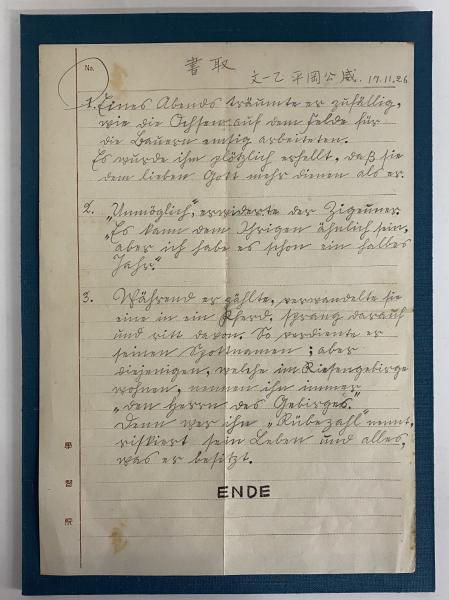 No.
書取
文一乙 平岡公威. 17.11.26
1. Eines Abends träumte er zufällig,
wie die Ochsen auf dem Felde für
die Bauern emsig arbeiteten.
Es wurde ihm plötzlich erhellt, daß sie
dem lieben Gott mehr dienen als er.
2. „Unmöglich", erwiderte der Zigeuner.
„Es kann dem Ihrigen ähnlich sein,
aber ich habe es schon ein halbes
Jahr."
3. Während er zählte, verwandelte sie
eine in ein Pferd, sprang darauf
und ritt davon. So verdiente er
seinen Spottnamen; aber
diejenigen, welche im Riesengebirge
wohnen, nennen ihn immer
„den Herrn des Gebirges."
Denn wer ihn „Rübezahl" nennt,
riskiert sein Leben und alles,
was er besitzt.
ENDE
學習院